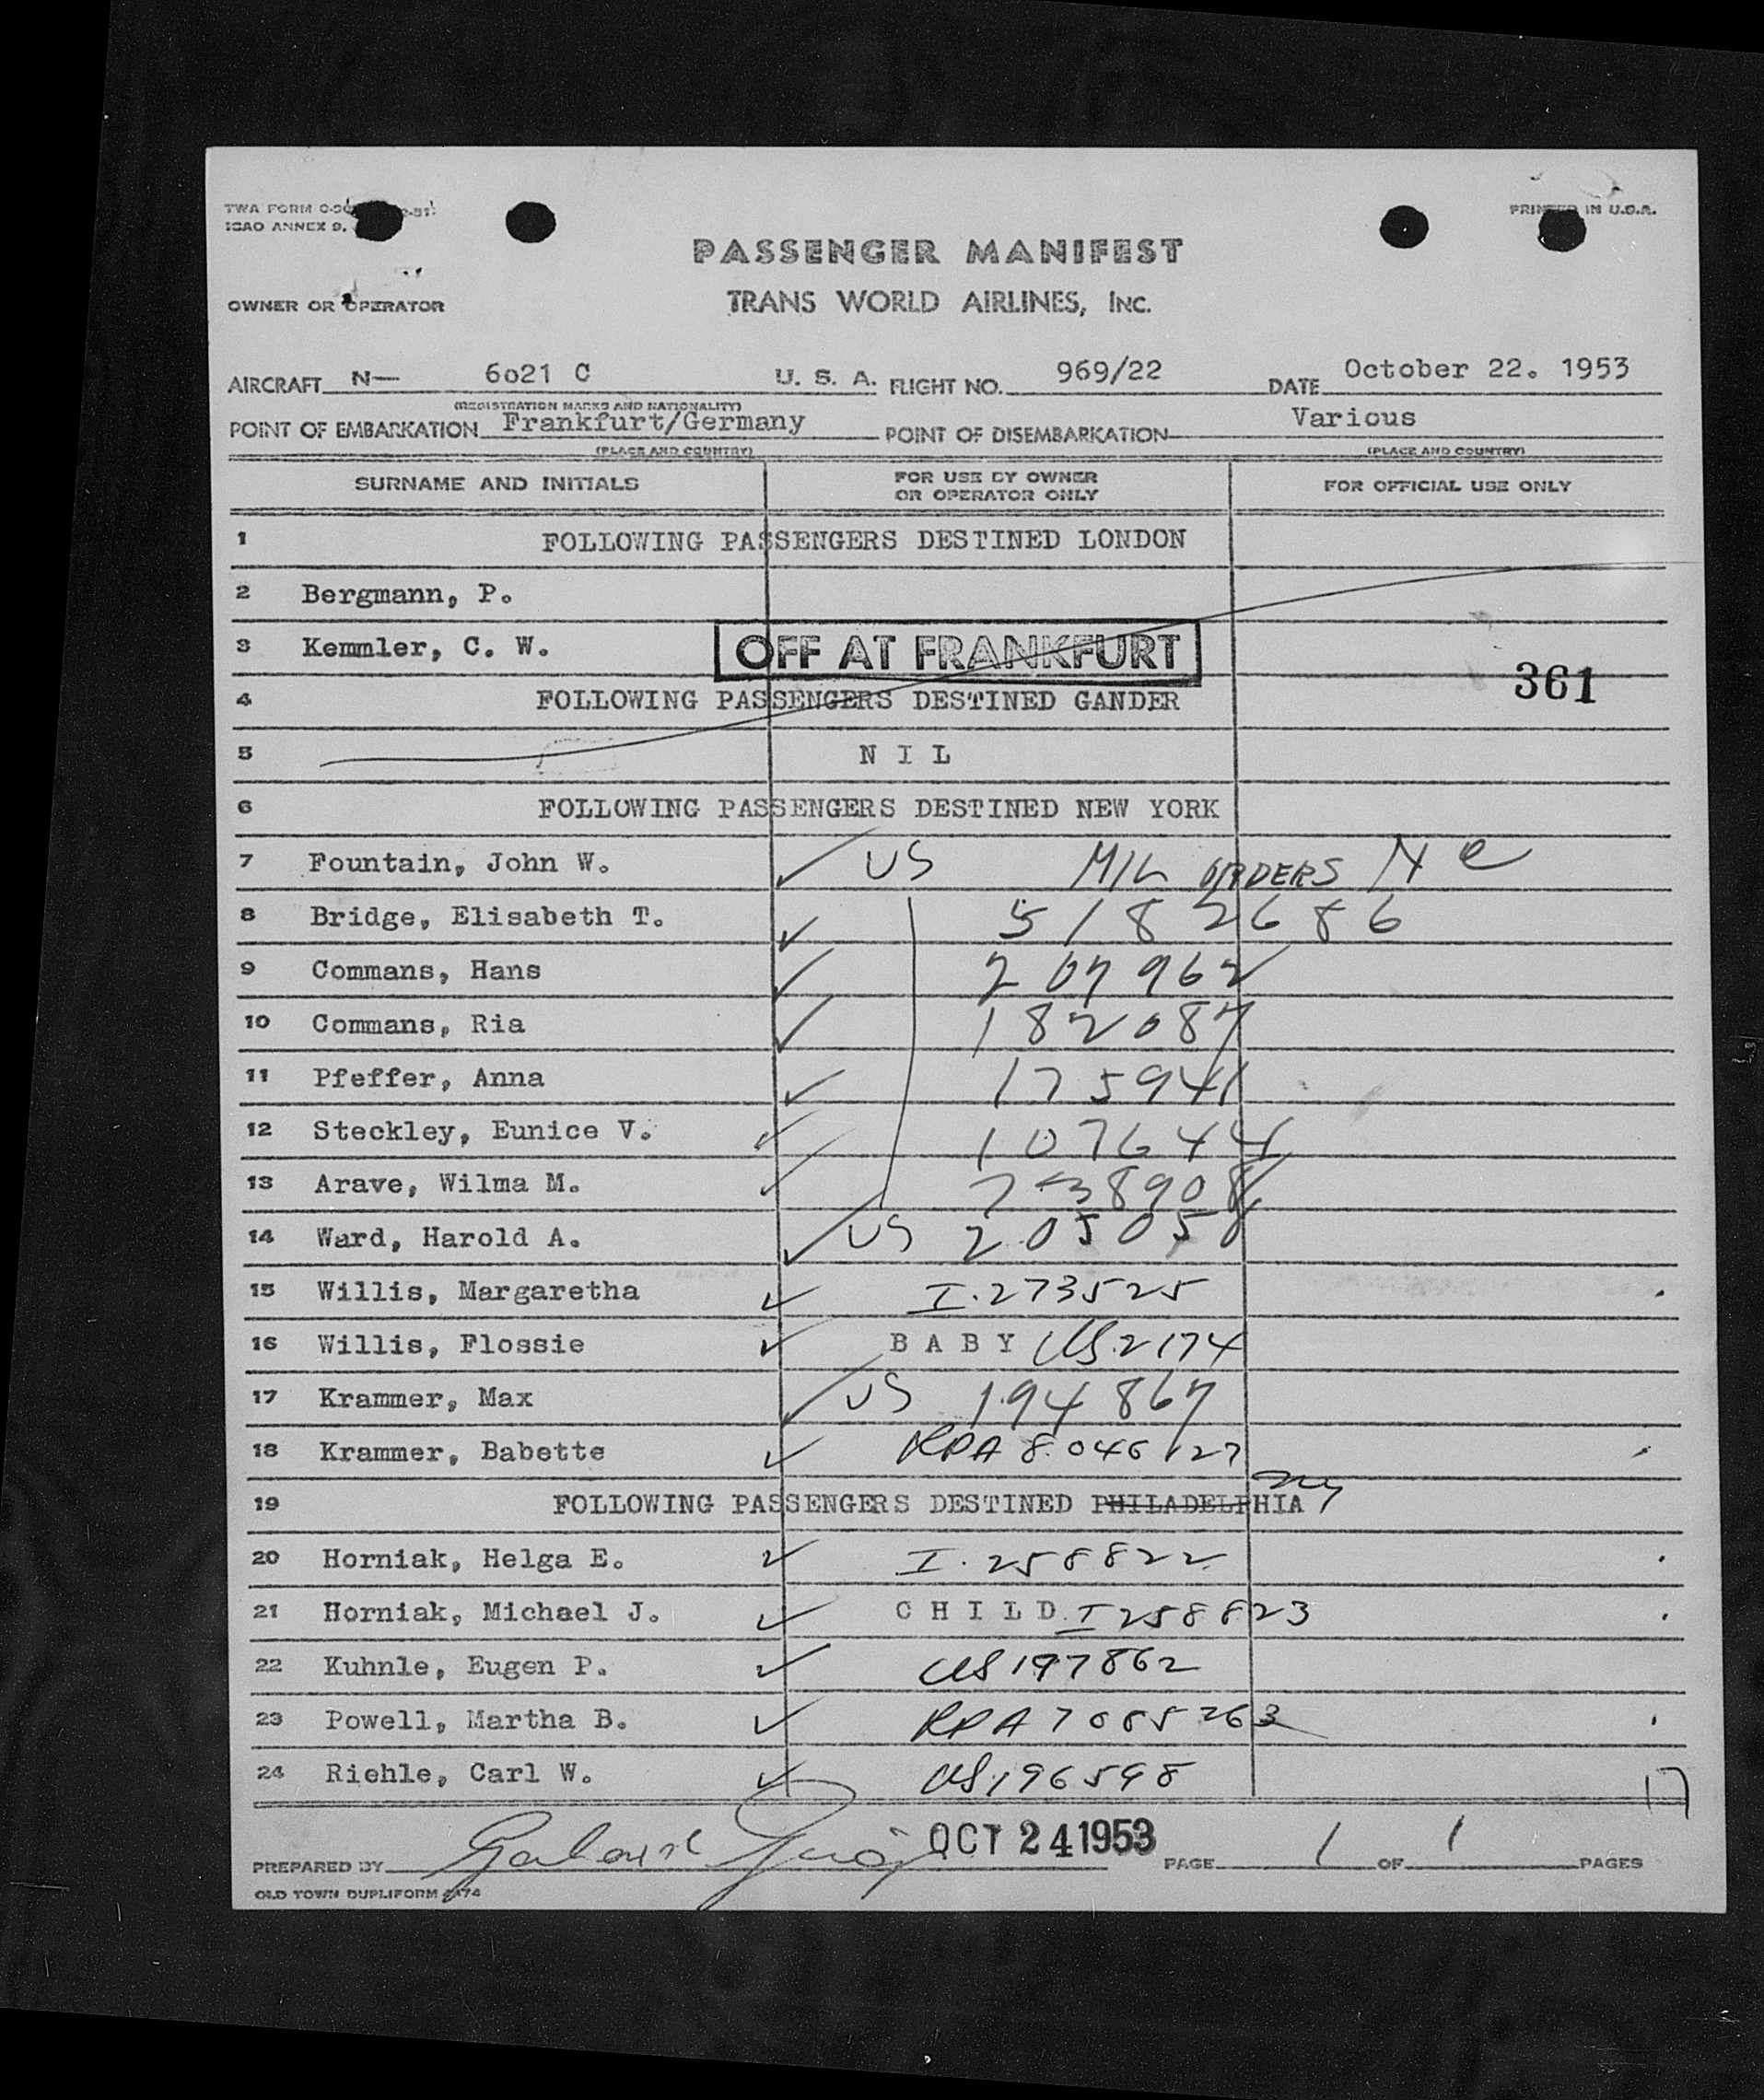 TWA FORM
PRINTED IN U.S.A.
ICAO ANNEX 9.
PASSENGER MANIFEST
OWNER OR OPERATOR TRANS WORLD AIRLINES, INC.
AIRCRAFT N— 6021 C U. S. A. FLIGHT NO. 969/22 DATE October 22. 1953
(REGISTRATION MARKS AND NATIONALITY)
POINT OF EMBARKATION Frankfurt/Germany POINT OF DISEMBARKATION Various
(PLACE AND COUNTRY) (PLACE AND COUNTRY)
SURNAME AND INITIALS FOR USE BY OWNER OR OPERATOR ONLY FOR OFFICIAL USE ONLY
1 FOLLOWING PASSENGERS DESTINED LONDON
2 Bergmann, P.
3 Kemmler, C. W. OFF AT FRANKFURT
361
4 FOLLOWING PASSENGERS DESTINED GANDER
5 N I L
6 FOLLOWING PASSENGERS DESTINED NEW YORK
7 Fountain, John W. ✓ US MIL ORDERS
8 Bridge, Elisabeth T. ✓ 5182686
9 Commans, Hans ✓ 207962
10 Commans, Ria ✓ 182087
11 Pfeffer, Anna ✓ 175941
12 Steckley, Eunice V. ✓ 107644
13 Arave, Wilma M. ✓ 738908
14 Ward, Harold A. ✓ US 205058
15 Willis, Margaretha ✓ I.273525
16 Willis, Flossie ✓ B A B Y US.2174
17 Krammer, Max ✓ US 194867
18 Krammer, Babette ✓ RPA 8.046127
19 FOLLOWING PASSENGERS DESTINED PHILADELPHIA NY
20 Horniak, Helga E. ✓ I.258822
21 Horniak, Michael J. ✓ C H I L D I258823
22 Kuhnle, Eugen P. ✓ US197862
23 Powell, Martha B. ✓ RPA7085263
24 Riehle, Carl W. ✓ US196598
17
PREPARED BY OCT 24 1953 PAGE 1 OF 1 PAGES
OLD TOWN DUPLIFORM